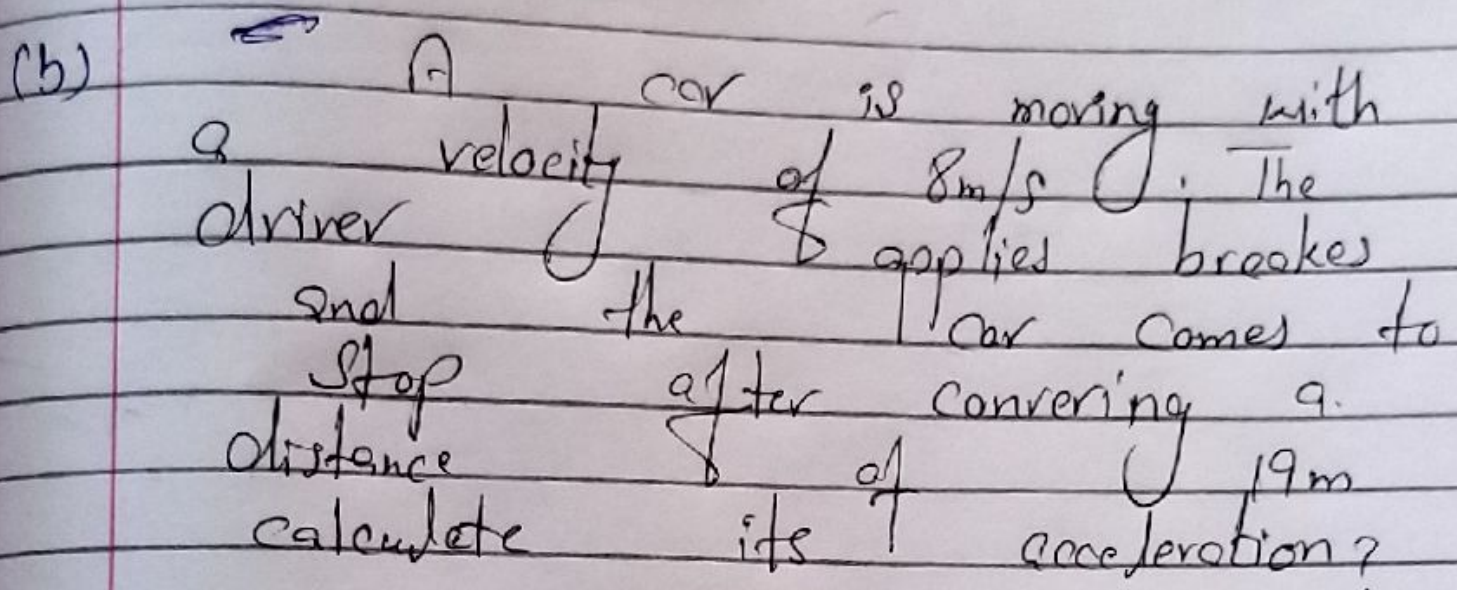 (b) A car is moving with
a velocity of 8m/s. The
driver applies breakes
and the car comes to
stop after convering a.
distance of 19m
calculate its acceleration?